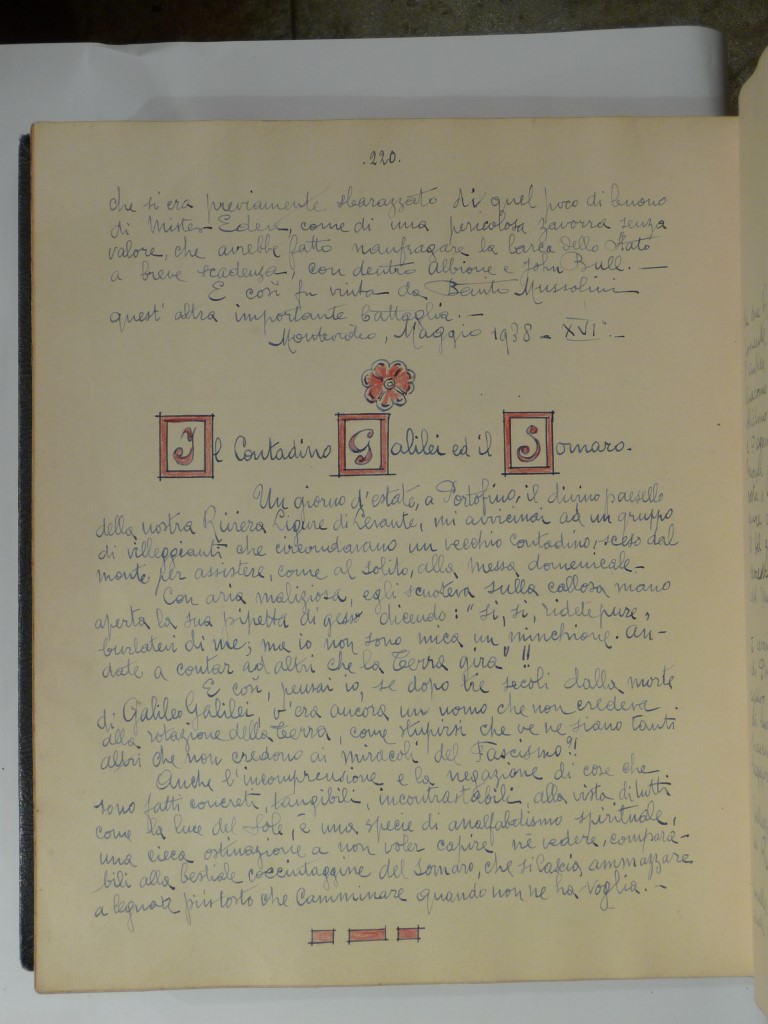 .220.
che si era previamente sbarazzato di quel poco di buono
di Mister Eden, come di una pericolosa zavorra senza
valore, che avrebbe fatto naufragare la barca dello Stato
a breve scadenza, con dentro Albione e John Bull. —
E così fu vinta da Benito Mussolini
quest'altra importante battaglia. —
Montevideo, Maggio 1938 - XVI° —
Il Contadino Galilei ed il Somaro.
Un giorno d'estate, a Portofino, il divino paesello
della nostra Riviera Ligure di Levante, mi avvicinai ad un gruppo
di villeggianti che circondavano un vecchio contadino, sceso dal
monte per assistere, come al solito, alla messa domenicale. —
Con aria maliziosa, egli scuoteva sulla callosa mano
aperta la sua pipetta di gesso dicendo: "si, si, ridete pure,
burlatevi di me; ma io non sono mica un minchione. An-
date a contar ad altri che la Terra gira"!!
E così, pensai io, se dopo tre secoli dalla morte
di Galileo Galilei, v'era ancora un uomo che non credeva
alla rotazione della Terra, come stupirsi che ve ne siano tanti
altri che non credono ai miracoli del Fascismo?!
Anche l'incomprensione e la negazione di cose che
sono fatti concreti, tangibili, incontrastabili, alla vista di tutti
come la luce del Sole, è una specie di analfabetismo spirituale,
una cieca ostinazione a non voler capire nè vedere, compara-
bili alla bestiale cocciutaggine del somaro, che si lascia ammazzare
a legnate piùtosto che camminare quando non ne ha voglia. —